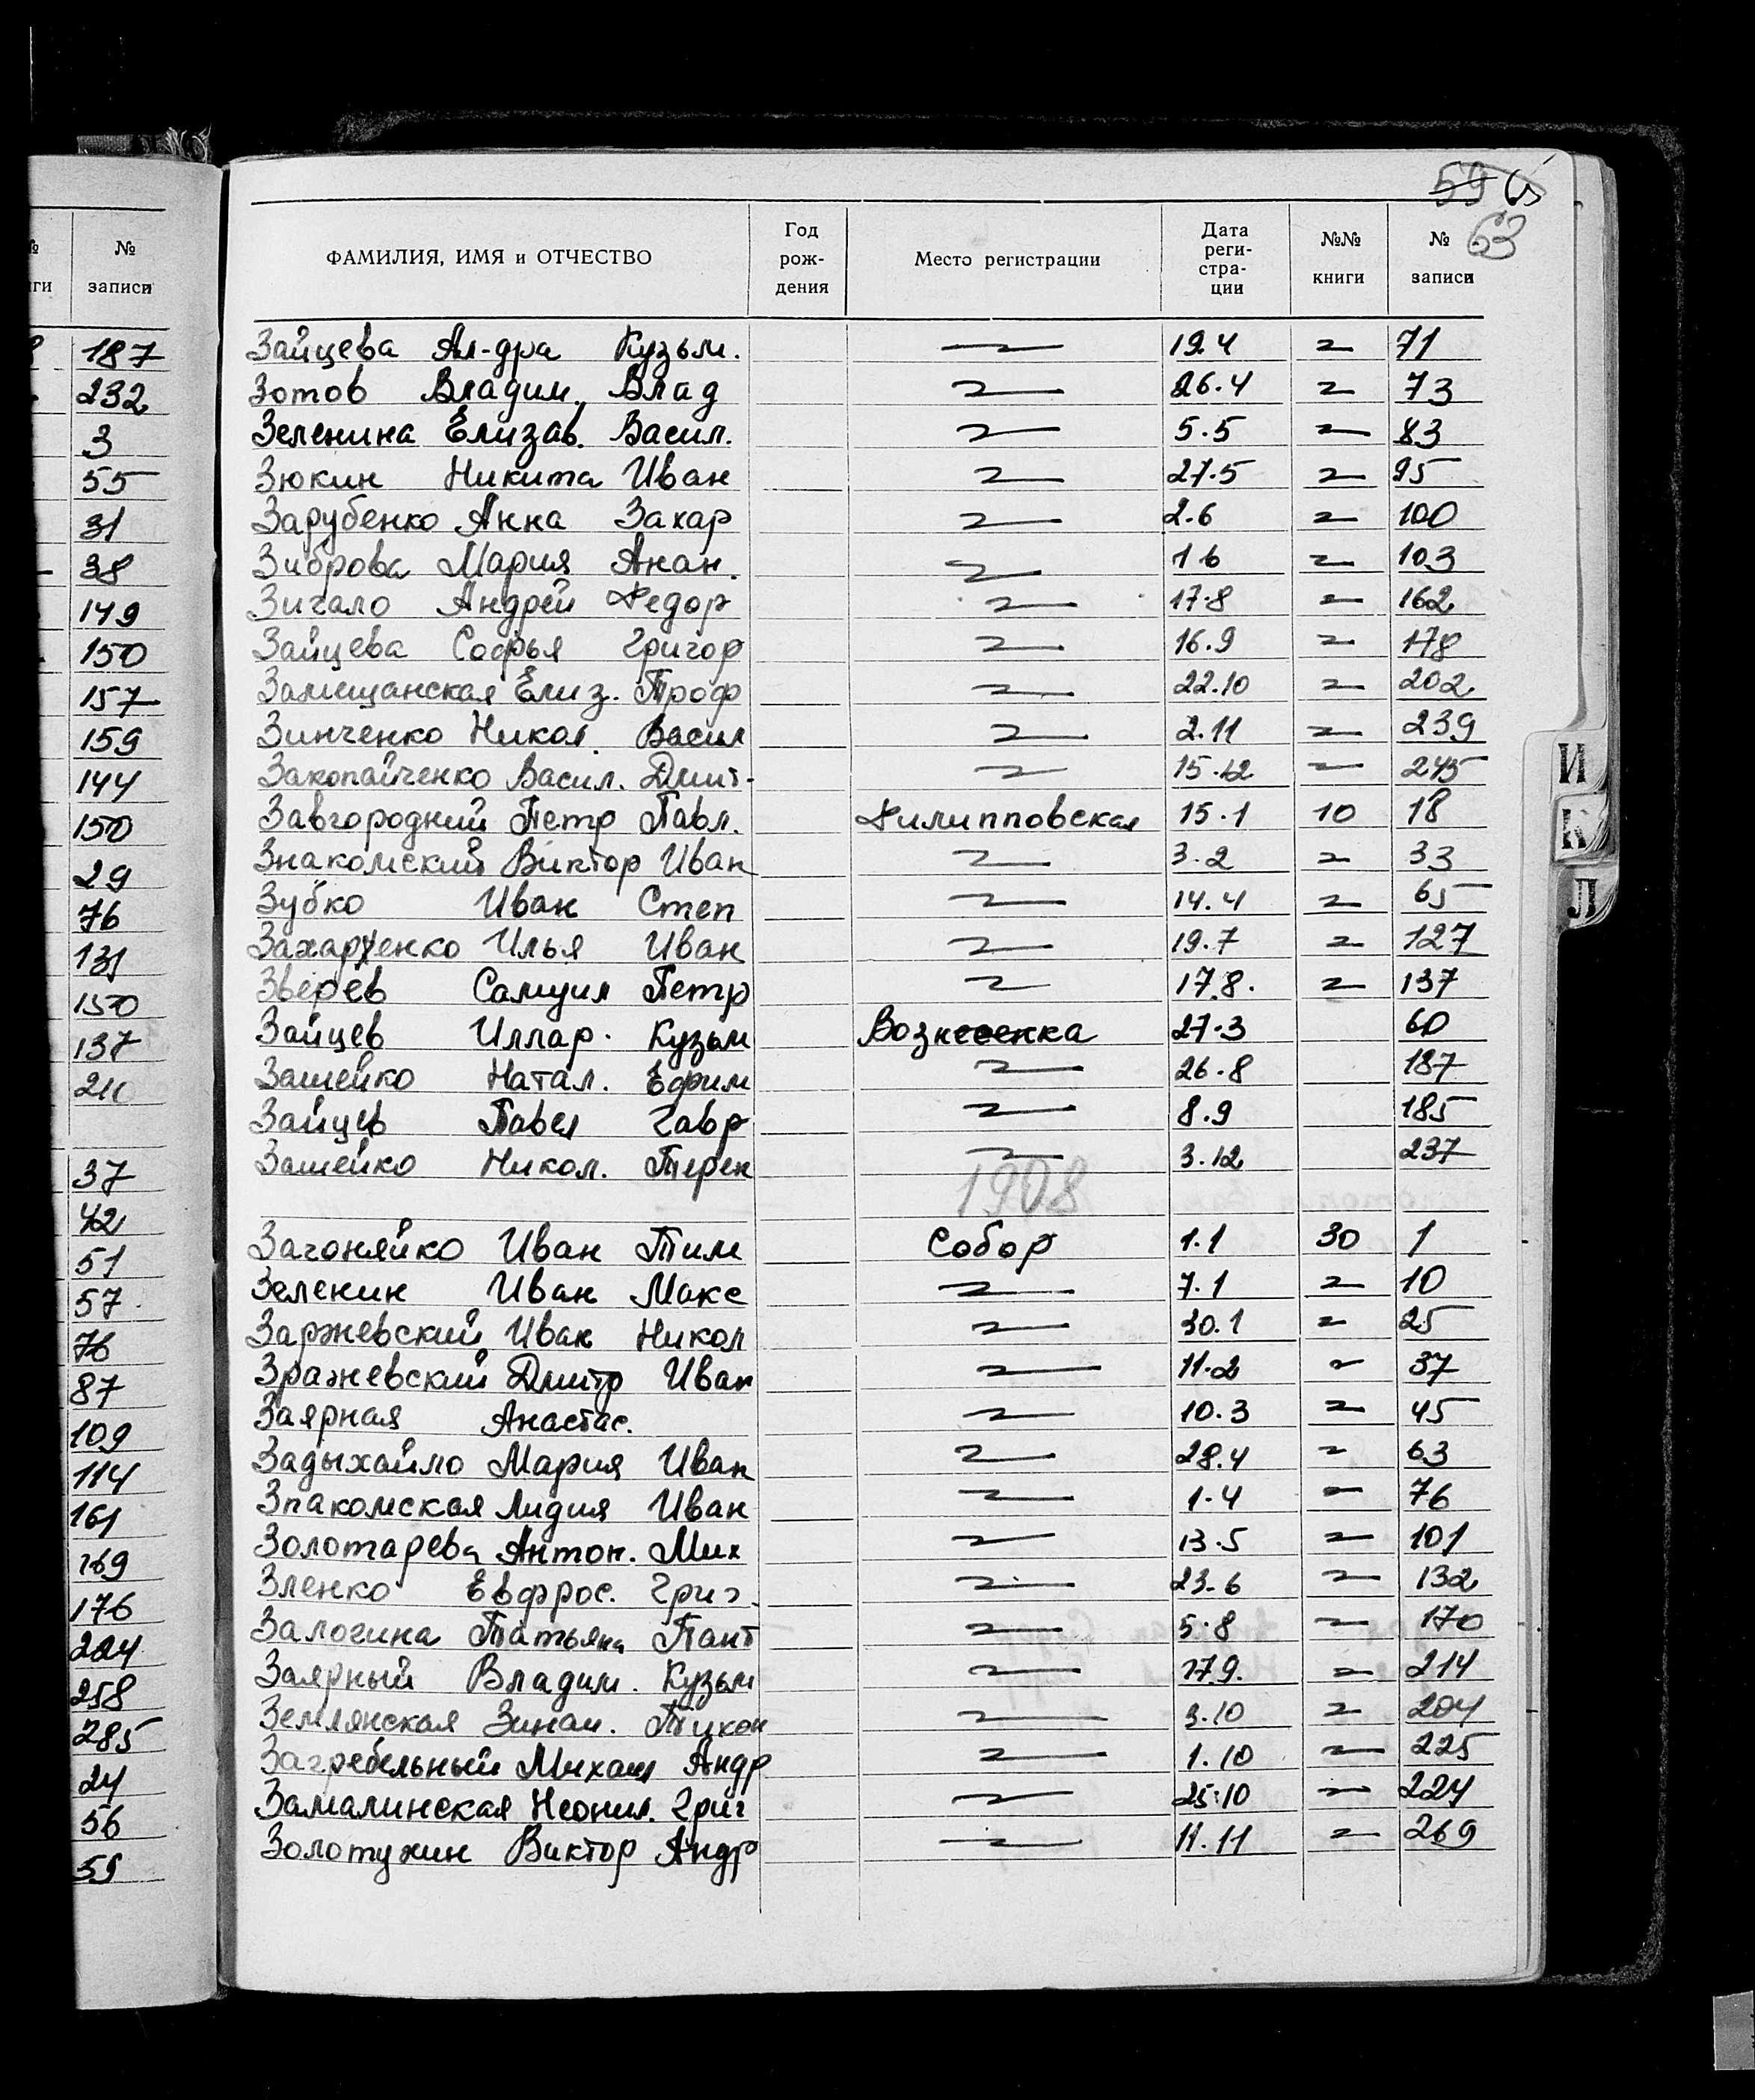 59
63
№ записи
187
232
3
55
31
38
149
150
157
159
144
150
29
76
131
150
137
37
42
51
57
76
87
109
114
161
169
176
224
258
285
24
56
59
ФАМИЛИЯ, ИМЯ и ОТЧЕСТВО Год рож- дения Место регистрации Дата реги- стра- ции №№ книги № записи
Зайцева Ал-дра Кузьм. 19.4 71
Зотов Владим. Влад 26.4 73
Зеленина Елизав. Васил. 5.5 83
Зюкин Никита Иван 27.5 95
Зарубенко Анна Захар 2.6 100
Зиброва Мария Анан. 1 6 103
Зичало Андрей Федор 17.8 162
Зайцева Софья Григор 16.9 178
Замещанская Елиз. Троф 22.10 202
Зинченко Никол. Васил 2.11 239
Закопайченко Васил. Дмит. 15.12 245
Завгородний Петр Павл. Филипповская 15.1 10 18
Знакомский Виктор Иван 3.2 33
Зубко Иван Степ 14.4 65
Захарченко Илья Иван 19.7 127
Зверев Самуил Петр 17.8. 137
Зайцев Иллар. Кузьм Вознесенка 27.3 60
Зашейко Натал. Ефим 26.8 187
Зайцев Павел Гавр 8.9 185
Зашейко Никол. Терен 3.12 237
1908
Загоняйко Иван Тим Собор 1.1 30 1
Зеленин Иван Макс 7.1 10
Заржевский Иван Никол 30.1 25
Зражевский Дмитр Иван 11.2 37
Заярная Анастас. 10.3 45
Задыхайло Мария Иван 28.4 63
Знакомская Лидия Иван 1.4 76
Золотарева Антон. Мих 13.5 101
Зленко Евфрос. Григ. 23.6 132
Залогина Татьяна Пант 5.8 170
Заярный Владим. Кузьм 17.9. 214
Землянская Зинаи. Тихон 3.10 204
Загребельный Михаил Андр 1.10 225
Замалинская Неонил. Григ 25.10 224
Золотухин Виктор Андр 11.11 269
И
К
Л